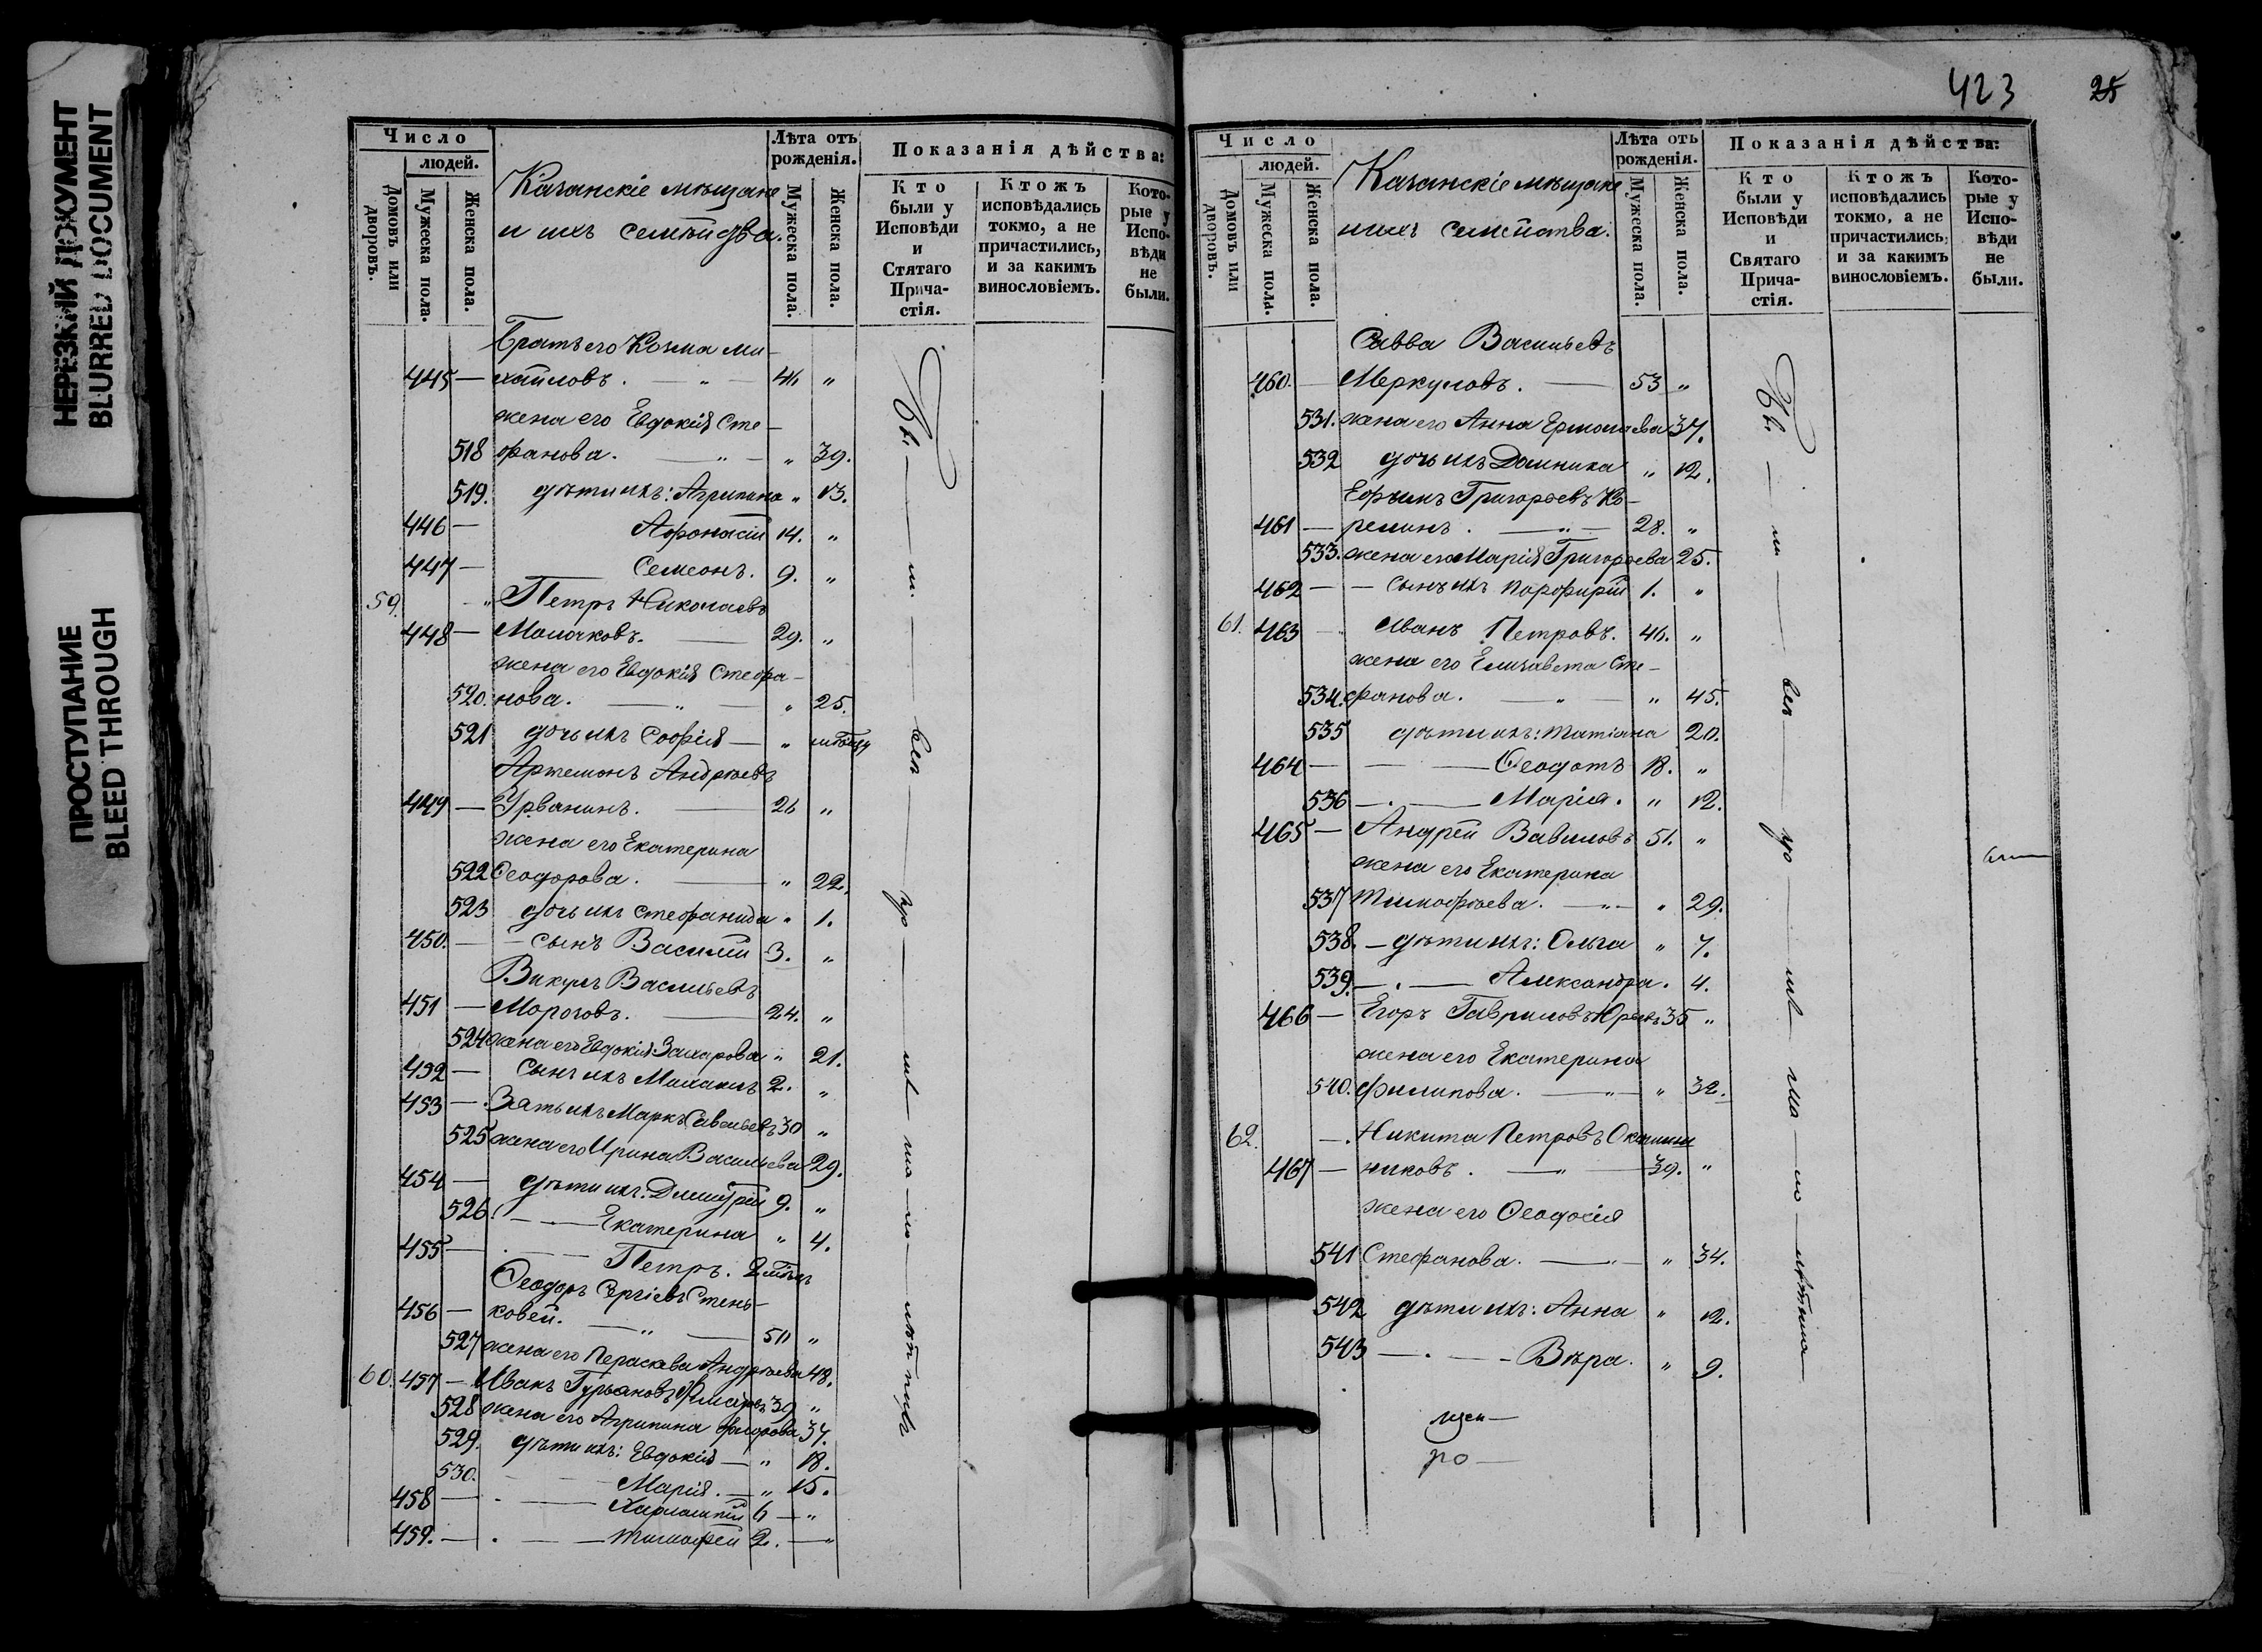 НЕРЕЗКИЙ ДОКУМЕНТ
BLURRED DOCUMENT
ПРОСТУПАНИЕ
BLEED THROUGH
Число
людей.
Домовъ или дворовъ.
Мужеска пола.
Женска пола.
Казанскіе мѣщане
и ихъ семейства.
Лѣта отъ рожденія.
Мужеска пола.
Женска пола.
Показанія дѣйства:
Кто были у Исповѣди и Стятаго Причастія.
Ктожъ исповѣдались токмо, а не причастились, и за какимъ винословіемъ.
Которые у Исповѣди не были.
Братъ его Козма Ми-
445 — хайловъ. — „ — 46 „
жена его Евдокія Сте-
518 фанова. — „ — „ 39.
519. дѣти ихъ: Агрипина „ 13.
446 — Афонасій 14. „
447 — Семеонъ. 9. „
59. „ Петръ Николаевъ
448 — Молочковъ. — 29. „
жена его Евдокія Стефа-
520. нова. — „ — „ 25.
521 дочь ихъ Софія — „
Артемонъ Андреевъ
449 — Урванинъ. — 26 „
жена его Екатерина
522 Ѳеодорова. — „ 22.
523 дочь ихъ Стефанида „ 1.
450. — сынъ Василій 3. „
Викулъ Васильевъ
451 — Морозовъ. — 24. „
524 жена его Евдокія Захарова „ 21.
452 — сынъ ихъ Михаилъ 2. „
453 — Зять ихъ Маркъ Савельевъ 30 „
525 жена его Ирина Васильева 29.
454 — дѣти ихъ: Димитрій 9. „
526. — Екатерина „ 4.
455 — Петръ.
Ѳеодоръ Сергіевъ Стень-
456 — ковей. — „ — 50 „
527 жена его Пераскева Андреева 48.
60. 457 — Иванъ Гурьяновъ 39 „
528 жена его Агрипина Фадорова 37.
529. дѣти ихъ: Евдокія — „ 18.
530. Марія. — „ 15.
458 — Харлампій 6 — „
459. — Тимофей 2. — „
423
25
Число
людей.
Домовъ или дворовъ.
Мужеска пола.
Женска пола.
Казанскіе мѣщане
и ихъ семейства.
Лѣта отъ рожденія.
Мужеска пола.
Женска пола.
Показанія дѣйства:
Кто были у Исповѣди и Святаго Причастія.
Ктожъ исповѣдались токмо, а не причастились, и за какимъ винословіемъ.
Которые у Исповѣди не были.
Савва Васильевъ
460. — Меркуловъ. — 53 „
531. жена его Анна Ермолаева 37.
532 дочь ихъ Домника „ 12.
Ефимъ Григорьевъ Ко-
461 — релинъ. — „ — 28. „
533. жена его Марія Григорьева 25.
462 — сынъ ихъ Порфирій 1. „
61. 463 — Иванъ Петровъ. 46. „
жена его Елизавета Сте-
534. фанова. — „ — „ 45.
535 дѣти ихъ: Татіана 20.
464 — Ѳеодотъ 18. „
536 — Марія. „ 12.
465 — Андрей Вавиловъ 51. „
жена его Екатерина
537 Тимофеева. — „ — „ 29.
538. — дѣти ихъ: Ольга „ 7.
539. — Александра. 4.
466 — Егоръ Гавриловъ Юрьевъ 35 „
жена его Екатерина
540. Филипова. — „ — „ 32.
62. — Никита Петровъ
467 — никовъ. — „ — 39. „
жена его Ѳеодосія
541 Стефанова. — „ — „ 34.
542 дѣти ихъ: Анна „ 12.
543 — Вѣра. „ 9.